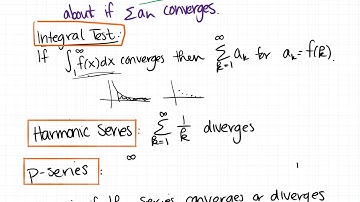 about if Σan converges.
Integral Test:
If ∫₁^∞ f(x)dx converges then ∑_{k=1}^∞ a_k for a_k = f(k).
Harmonic Series: ∑_{k=1}^∞ 1/k diverges
p-series: ∞
if the series converges or diverges